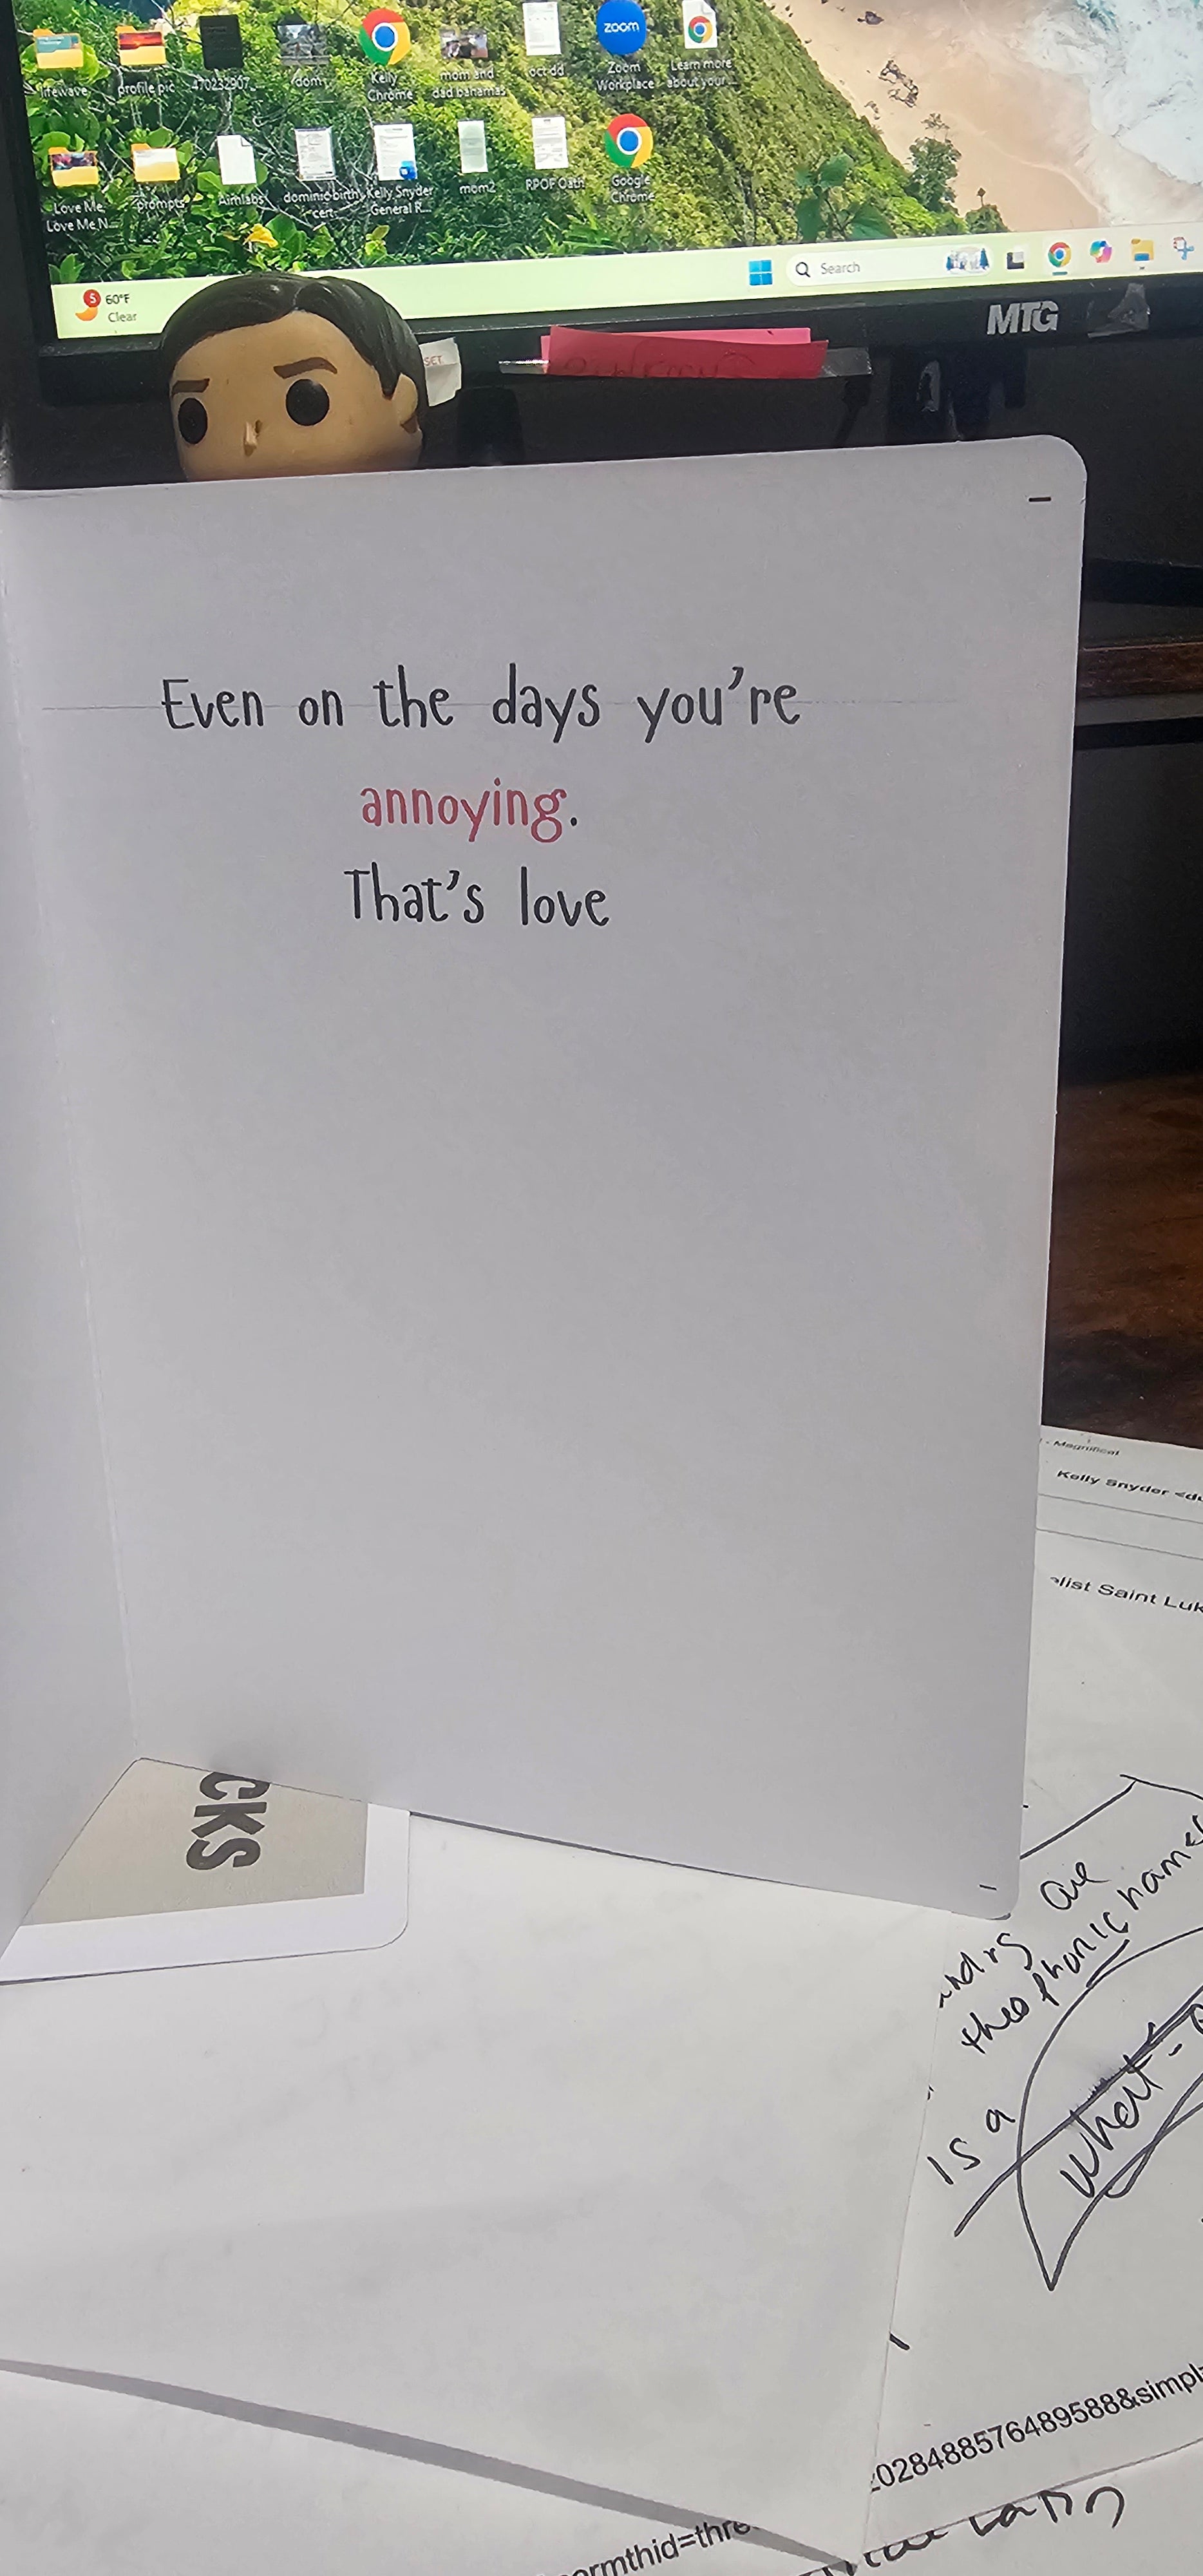 lifewave
profile pic
470232907...
dom
Kelly
Chrome
mom and
dad bahamas
oct dd
zoom
Zoom
Workplace
Learn more
about your ...
Love Me
Love Me N...
prompts
Aimlabs
dominic birth
cert
Kelly Snyder
General R...
mom2
RPOF Oath
Google
Chrome
5
60°F
Clear
Search
MTG
SET
Even on the days you're
annoying.
That's love
- Magnificat
Kelly Snyder <du
list Saint Luk
CKS
are
theophonic names
is a
what-
0284885764895888&simpl
ormthid=thre